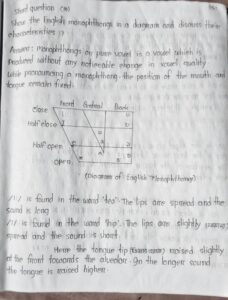 Short question (10)
Show the English monophthongs in a diagram and discuss their
characteristics ?
Answer: Monophthongs or pure vowel is a vowel which is
Produced without any noticeable change in vowel quality
While pronouncing a monophthong the position of the mouth and
tongue remain fixed.
Front Central Back
Close
Half close
Half open
Open
(Diagram of English Monophthong)
is found in the word "tea". The lips are spread and the
sound is long.
/I/ is found in the word "hip". The lips are slightly
spread and the sound is short.
Here the tongue tip raised slightly
at the front towards the alveolar. So the longer sound
the tongue is raised higher.